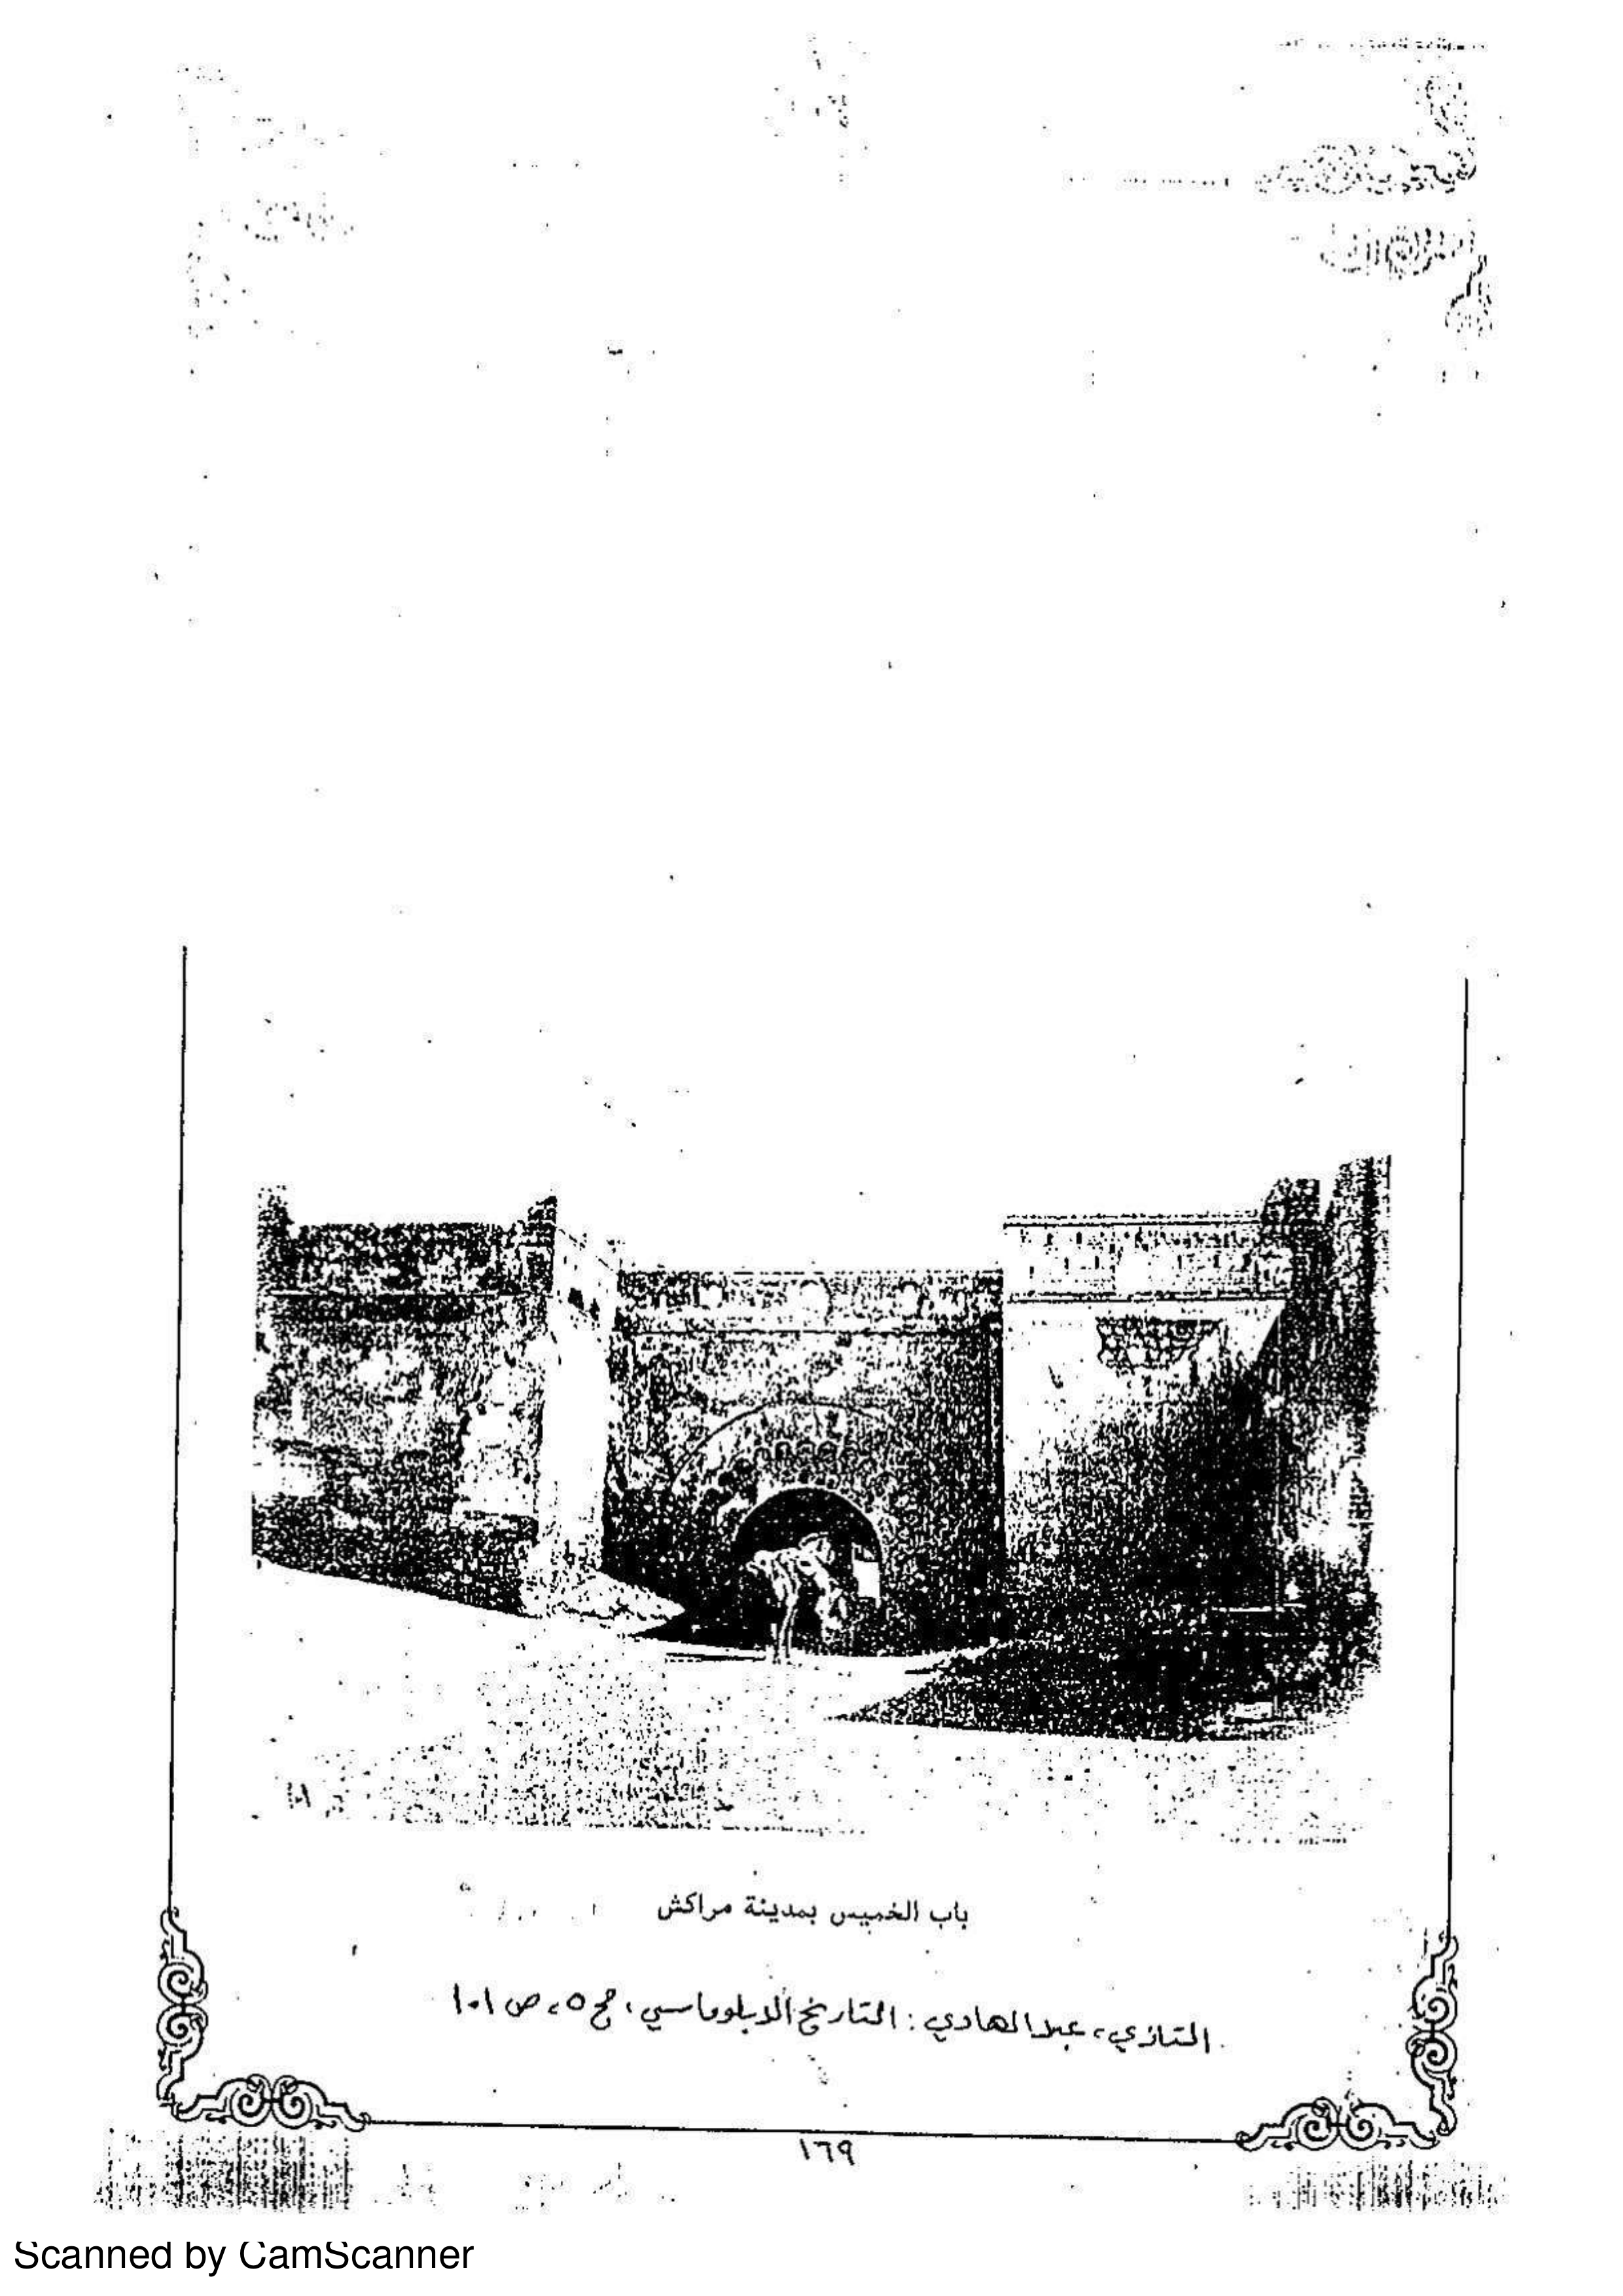 باب الخميس بمدينة مراكش
التازي، عبدالهادي : التاريخ الدبلوماسي، مج ٥، ص ١٠١
١٦٩
Scanned by CamScanner